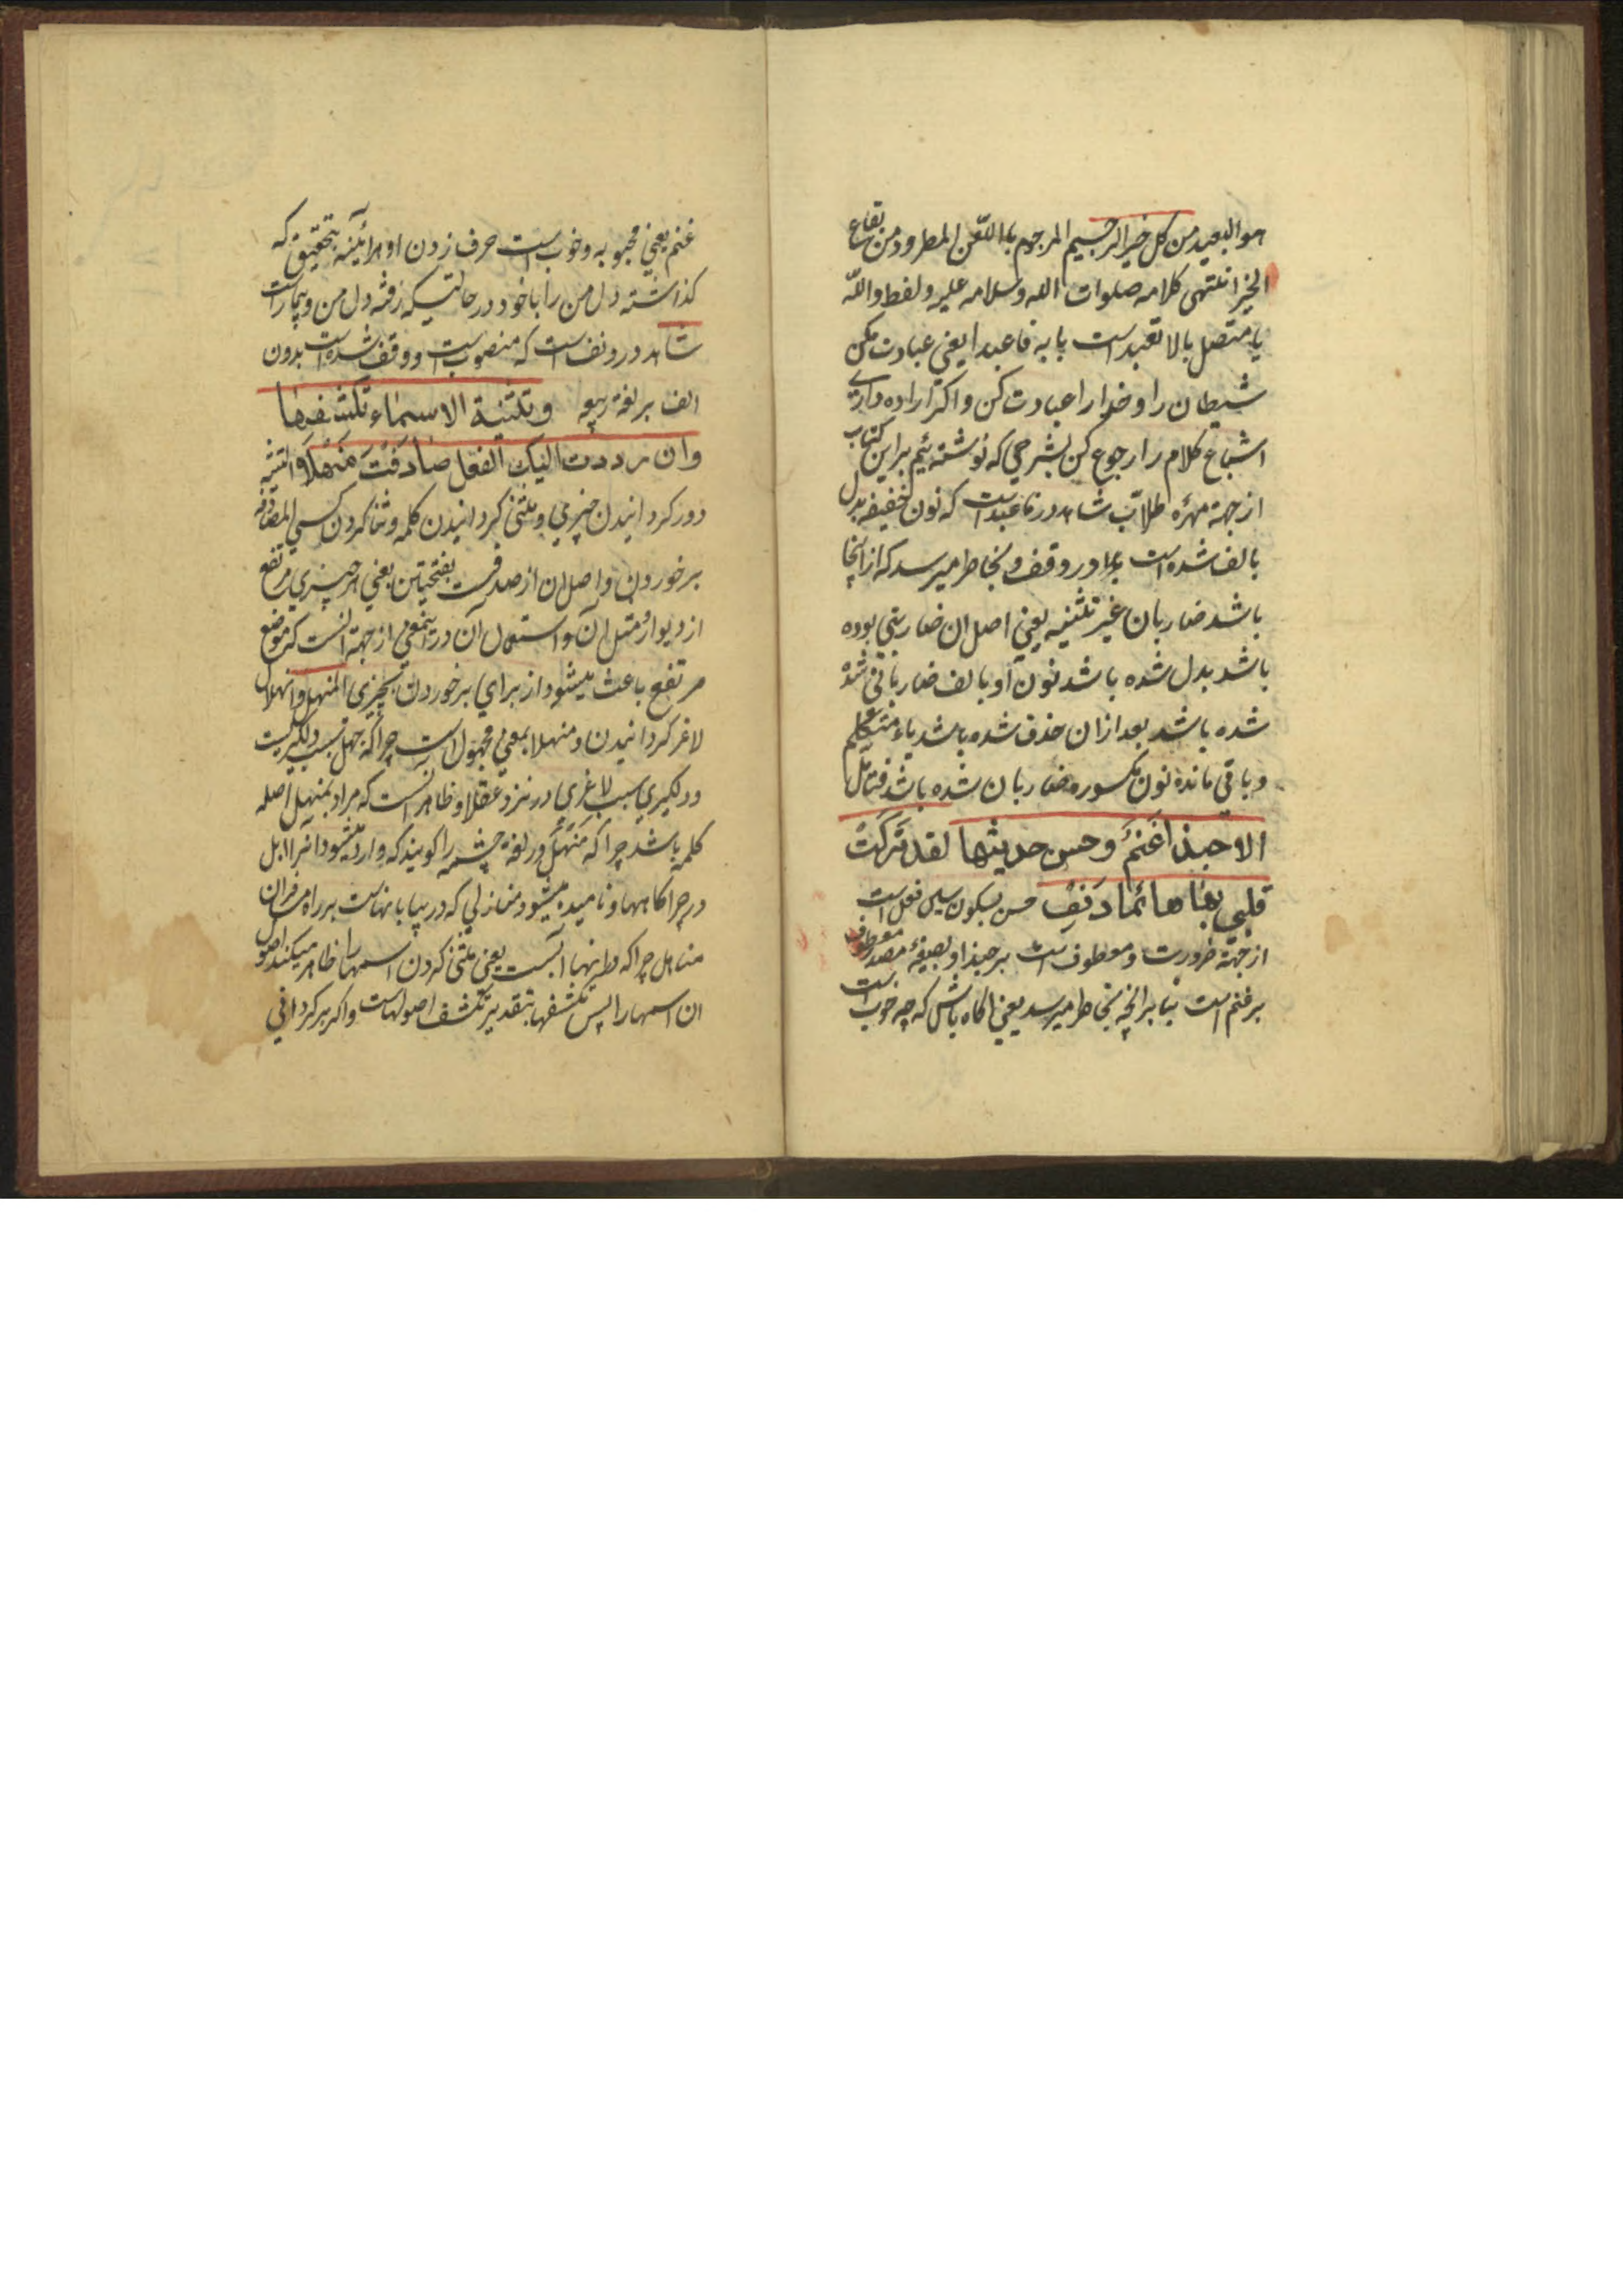 هو البعید من کل خیر الرجیم المرجوم باللعن المطرود من بقاع
الخیر انتهی کلامه صلوات الله وسلامه علیه ولفظ والله
یا متصل بالا تعبد است یا به فاعبدا یعنی عبادت مکن
شیطان را و خدا را عبادت کن و اکر اراده داری
اشباع کلام را رجوع کن بشرحی که نوشته‌ئیم براین کتاب
از جهة مهرۀ طلاب شاهد در فاعبد است که نون خفیفه بدل
بالف شده است در وقف و بخاطر میرسد که از اینجا
باشد ضاربان غیر تثنیه یعنی اصل ان ضاربنی بوده
باشد بدل شده باشد نون او بالف ضاربانی شده
شده باشد بعد ازان حذف شده باشد یاء متکلم
و باقی مانده نون مکسوره ضاربان شده باشد فتامل
الا حبذا غنم وحسن حدیثها لقد ترکت
قلبی بها هائما دنف حسن بسکون سین فعل است
از جهة ضرورت و معطوف است بر حبذا و بصیغۀ مصدر معطوف
بر غنم است بنا برانچه بخاطر میرسد یعنی اکاه باش که چه خوب است
غنم یعنی محبوبه و خوب است حرف زدن او هرآئینه بتحقیق که
کذاشته دل من را با خود در حالتیکه رفته دل من و بیمار است
شاهد در دنف است که منصوب است و وقف شده است بدون
الف بر لغة ربیعه وتثنیة الاسماء تکشفها
وان رددت الیک الفعل صادفت منهلا التثنیه
دور کردانیدن چیزی و مثنی کردانیدن کلمه و ثنا کردن کسی المصادفه
برخوردن و اصل ان از صدف است بفتحیتن یعنی هر چیزی مرتفع
از دیوار و مثل آن و استعمال آن در اینمعنی از جهة انست که موضع
مرتفع باعث میشود از برای برخوردن بچیزی المنهل و انهلال
لاغر کردانیدن و منهلا بمعنی مجهول است چراکه جهل سبب دلکیریست
و دلکیری سبب لاغری در نزد عقلا و ظاهر انست که مراد بمنهل اصله
کلمه باشد چراکه منهل در لغة چشمه را کویند که وارد میشود انرا ابل
در چراکاهها و نامیده میشود منازلی که در بیابانهاست بر راه مسافران
مناهل چراکه در انها آبست یعنی مثنی کردن اسمها را ظاهر میکند اصول
ان اسمها را پس تکشفها بتقدیر تکشف اصولهاست و اکر برکردانی